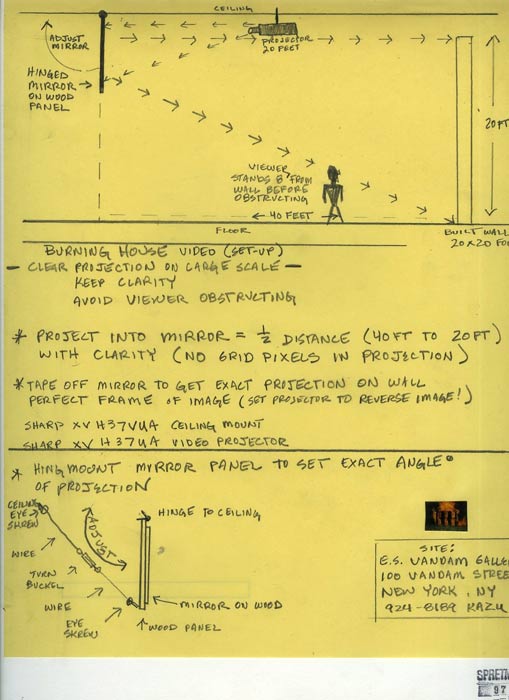 CEILING
ADJUST
MIRROR
PROJECTOR
20 FEET
HINGED
MIRROR
ON WOOD
PANEL
20 FT
VIEWER
STANDS 8' FROM
WALL BEFORE
OBSTRUCTING
← 40 FEET →
FLOOR
BUILT WALL
20x20 FO
BURNING HOUSE VIDEO (SET-UP)
— CLEAR PROJECTION ON LARGE SCALE —
KEEP CLARITY
AVOID VIEWER OBSTRUCTING
* PROJECT INTO MIRROR = ½ DISTANCE (40 FT TO 20 FT)
WITH CLARITY (NO GRID PIXELS IN PROJECTION)
* TAPE OFF MIRROR TO GET EXACT PROJECTION ON WALL
PERFECT FRAME OF IMAGE (SET PROJECTOR TO REVERSE IMAGE!)
SHARP XV H37VUA CEILING MOUNT
SHARP XV H37UA VIDEO PROJECTOR
* HING MOUNT MIRROR PANEL TO SET EXACT ANGLE°
OF PROJECTION
CEILING
EYE
SKREW
ADJUST
HINGE TO CEILING
WIRE
TURN
BUCKEL
WIRE
EYE
SKREW
MIRROR ON WOOD
WOOD PANEL
SITE:
E.S. VANDAM GALLE
100 VANDAM STREE
NEW YORK, NY
924-8189 KAZU
97